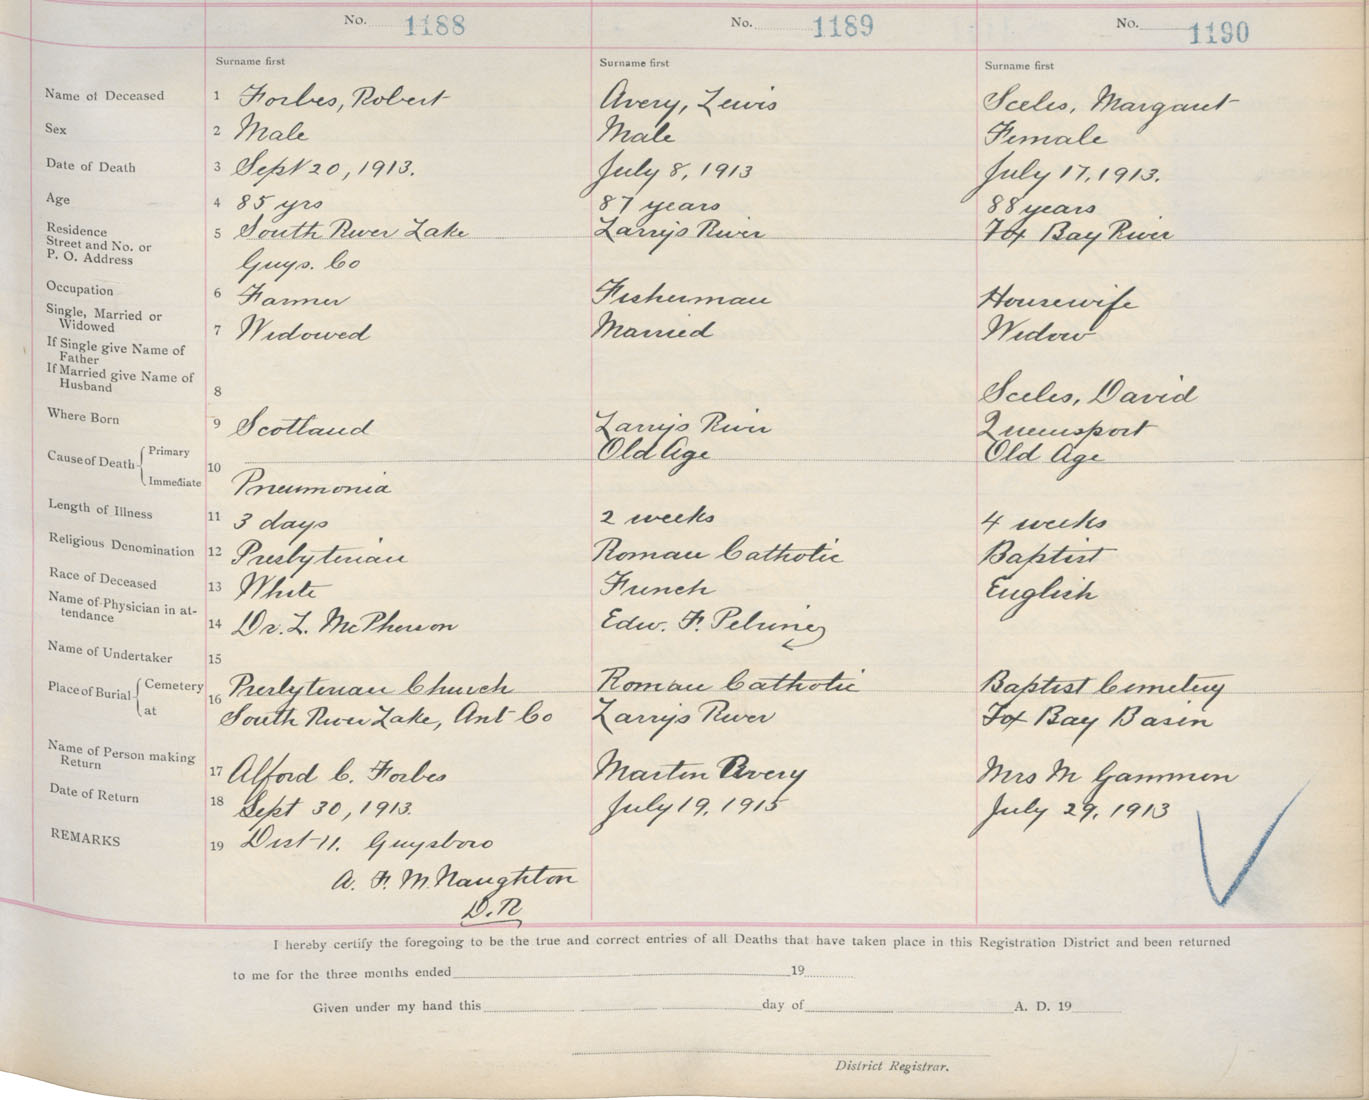 No. 1188 No. 1189 No. 1190
Surname first Surname first Surname first
Name of Deceased 1 Forbes, Robert Avery, Lewis Sceles, Margaret
Sex 2 Male Male Female
Date of Death 3 Sept 20, 1913. July 8, 1913 July 17, 1913.
Age 4 85 yrs 87 years 88 years
Residence
Street and No. or
P. O. Address 5 South River Lake Larrys River Fox Bay River
Guys. Co
Occupation 6 Farmer Fisherman Housewife
Single, Married or
Widowed 7 Widowed Married Widow
If Single give Name of
Father
If Married give Name of
Husband 8 Sceles, David
Where Born 9 Scotland Larrys River Queensport
Cause of Death Primary 10 Old Age Old Age
Immediate Pneumonia
Length of Illness 11 3 days 2 weeks 4 weeks
Religious Denomination 12 Presbyterian Roman Catholic Baptist
Race of Deceased 13 White French English
Name of Physician in at-
tendance 14 Dr. L. McPherson Edw. F. Pelrine
Name of Undertaker 15
Place of Burial Cemetery 16 Presbyterian Church Roman Catholic Baptist Cemetery
at South River Lake, Ant Co Larrys River Fox Bay Basin
Name of Person making
Return 17 Alford C. Forbes Martin Avery Mrs M Gammon
Date of Return 18 Sept 30, 1913. July 19, 1915 July 29, 1913
REMARKS 19 Dist 11. Guysboro
A. F. McNaughton
D. R
I hereby certify the foregoing to be the true and correct entries of all Deaths that have taken place in this Registration District and been returned
to me for the three months ended 19
Given under my hand this day of A. D. 19
District Registrar.